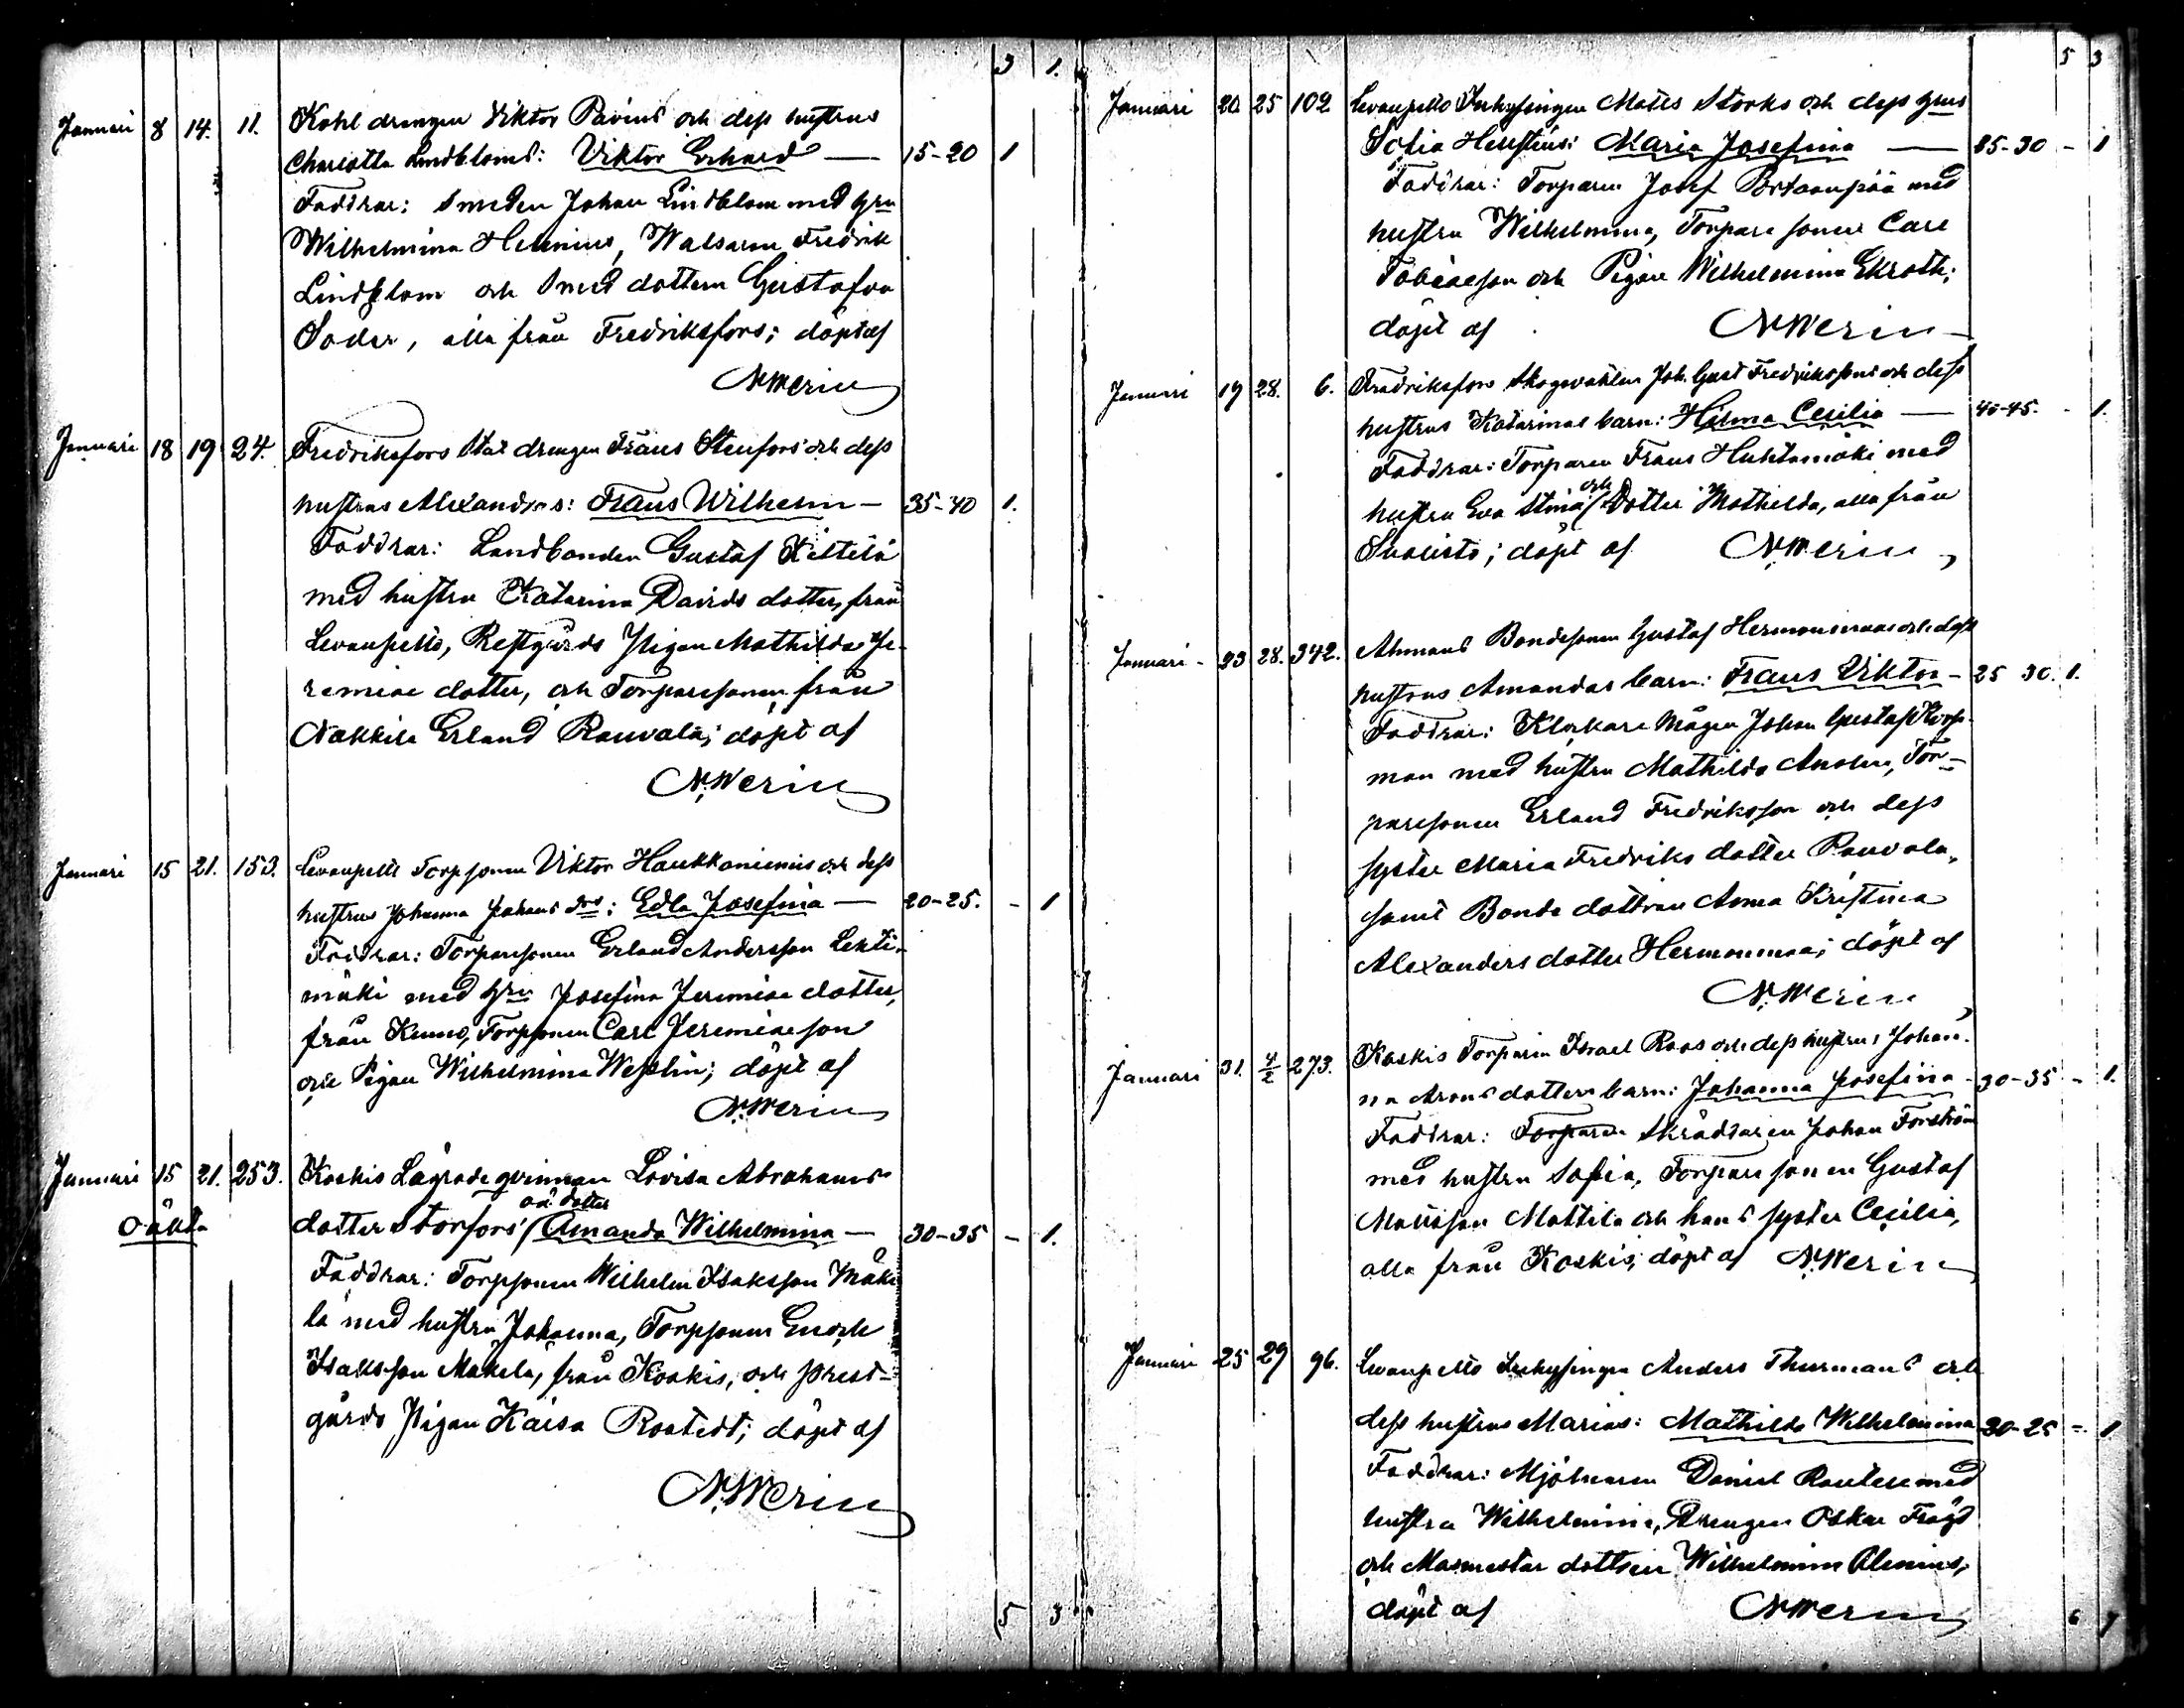 3 1.
Januari 8 14. 11. Kohl drengen Viktor Pavius och dess hustrus
Charlotta Lindbloms: Viktor Erhard — 15-20 1
Faddrar: Smeden Johan Lindblom med hru
Wilhelmina Helenius, Walsaren Fredrik
Lindblom och Smed dottern Gustafva
Söder, alla från Fredriksfors; döpt af
N. Merin
Januari 18 19 24. Fredriksfors Stal drengen Frans Stenfors och dess
hustrus Alexandras: Frans Wilhelm — 35-40 1.
Faddrar: Landbonden Gustaf Kittilä
med hustru Katarina Davids dotter, från
Levanpelto, Prestgårds Pigan Mathilda Je-
remiae dotter, och Torparesonen från
Nakkila Erland Rauvala; döpt af
N. Merin
Januari 15 21. 153. Levanpelto Torpsonen Viktor Haukkaniemis och dess
hustrus Johanna Johans drs: Edla Josefina — 20-25. - 1
Faddrar: Torparesonen Erland Andersson Lehti-
mäki med hru Josefina Jeremiae dotter,
från Kumo, Torpsonen Carl Jeremiaeson
och Pigan Wilhelmina Wesslin; döpt af
N. Merin
Januari 15 21. 253. Koskis Lägrade qvinnan Lovisa Abrahams
Oäkta dotter Storfors' oä. dotter Amanda Wilhelmina — 30-35 - 1.
Faddrar: Torpsonen Wilhelm Isaksson Mäke
lä med hustru Johanna, Torpsonen Enoch
Isaksson Mäkelä, från Koskis, och prest-
gårds Pigan Kaisa Rostedt; döpt af
N. Merin
5 3
5 3
Januari 20 25 102 Levanpelto Inhysingen Matts Storks och dess hrus
Sofia: Maria Josefina — 25-30 - 1
Faddrar: Torparen Josef Portaanpää med
hustru Wilhelmina, Torpare sonen Carl
Tobiaeson och Pigan Wilhelmina Ekroth;
döpt af N. Merin
Januari 19 28. 6. Fredriksfors Skogvakten Joh. Gust Fredrikssons och dess
hustrus Katarinas barn: Hilma Cecilia — 40-45. - 1.
Faddrar: Torparen Frans Huhtamäki med
hustru Eva Stina och Dotter Mathilda, alla från
Suolisto; döpt af N. Merin
Januari - 23 28. 342. Ahmaus Bondesonen Gustaf Hermonmaas och dess
hustrus Amandas barn: Frans Viktor - 25 30. 1.
Faddrar: Klockare Mågen Johan Gustaf Korp-
man med hustru Mathilda, Tor-
paresonen Erland Fredriksson och dess
syster Maria Fredriks dotter Rauvala,
samt Bonde dottren Anna Kristina
Alexanders dotter Hermonmaa; döpt af
N. Merin
Januari 31. 4/2 273. Koskis Torparen Israel Roos och dess hustrus Johan-
na Arons dotters barn: Johanna Josefina - 30-35 - 1.
Faddrar: Torparen Skräddaren Johan Forström
med hustru Sofia, Torpare sonen Gustaf
Mattsson Mattila och hans syster Cecilia,
alla från Koskis; döpt af N. Merin
Januari 25 29 96. Levanpelto Inhysingen Anders Thurmans och
dess hustrus Marias: Mathilda Wilhelmina 20-25 - 1
Faddrar: Mjölnaren Daniel Rautell med
hustru Wilhelmina, Drengen Oskar Frögd
och Masmestar dottren Wilhelmina Alenius,
döpt af N. Merin
6 7